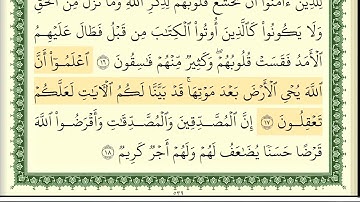 لِلَّذِينَ ءَامَنُوٓا۟ أَن تَخْشَعَ قُلُوبُهُمْ لِذِكْرِ ٱللَّهِ وَمَا نَزَلَ مِنَ ٱلْحَقِّ
وَلَا يَكُونُوا۟ كَٱلَّذِينَ أُوتُوا۟ ٱلْكِتَٰبَ مِن قَبْلُ فَطَالَ عَلَيْهِمُ
ٱلْأَمَدُ فَقَسَتْ قُلُوبُهُمْ ۖ وَكَثِيرٌ مِّنْهُمْ فَٰسِقُونَ ١٦ ٱعْلَمُوٓا۟ أَنَّ
ٱللَّهَ يُحْىِ ٱلْأَرْضَ بَعْدَ مَوْتِهَا ۚ قَدْ بَيَّنَّا لَكُمُ ٱلْـَٔايَٰتِ لَعَلَّكُمْ
تَعْقِلُونَ ١٧ إِنَّ ٱلْمُصَّدِّقِينَ وَٱلْمُصَّدِّقَٰتِ وَأَقْرَضُوا۟ ٱللَّهَ
قَرْضًا حَسَنًا يُضَٰعَفُ لَهُمْ وَلَهُمْ أَجْرٌ كَرِيمٌ ١٨
٥٣٩